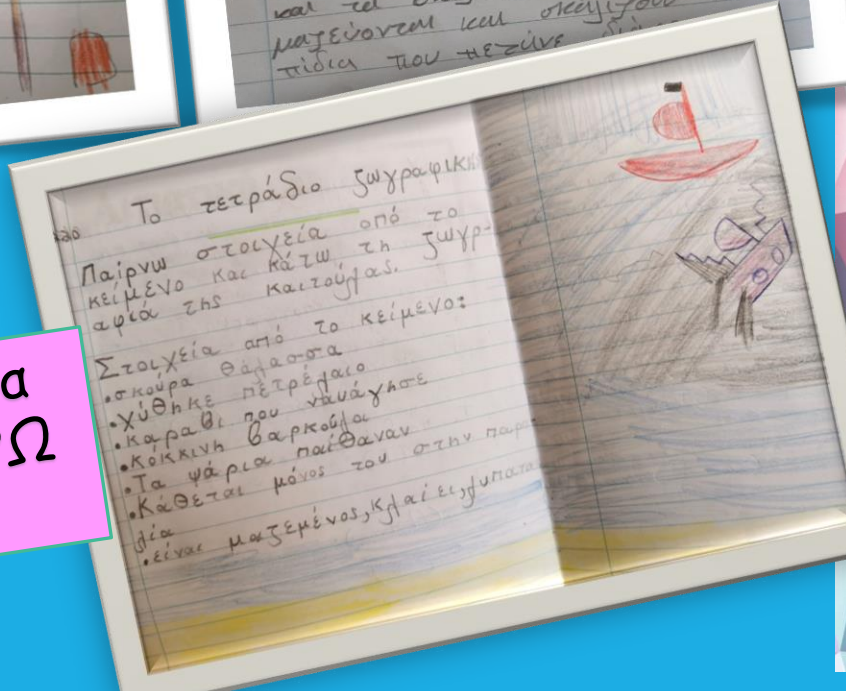 και τα
μαζεύονται και σκαλίζουν
πίδια που πετάνε
Το τετράδιο ζωγραφικ
Παίρνω στοιχεία από το
κείμενο και κάτω τη ζωγρ-
αφιά της
Στοιχεία από το κείμενο:
•σκούρα θάλασσα
•χύθηκε πετρέλαιο
•καραβι που ναυάγησε
•κόκκινη βαρκούλα
•Τα ψάρια παίθαναν
•Κάθεται μόνος του στην παρα
λία
•είναι μαζεμένος, κλαίει, λυπατα
α
Ω